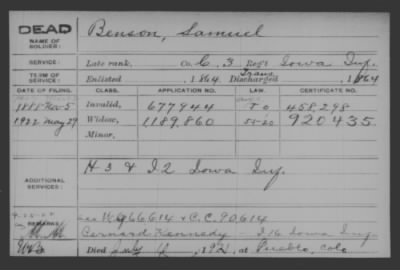 DEAD
NAME OF SOLDIER:
Benson, Samuel
SERVICE:
Late rank, Co. C, 3 Reg't Iowa Inf.
TERM OF SERVICE:
Enlisted , 1864 Discharged Trans , 1864
DATE OF FILING. CLASS. APPLICATION NO. LAW. CERTIFICATE NO.
1888 Nov 5 Invalid, 677944 458,298
1922 May 29 Widow, 1189,860 920435
Minor,
ADDITIONAL SERVICES:
H 3 & I 2 Iowa Inf.
REMARKS:
& C.C. 90,614
Bernard Kennedy — I 16 Iowa Inf.
Died July , 192 , at Pueblo, Colo